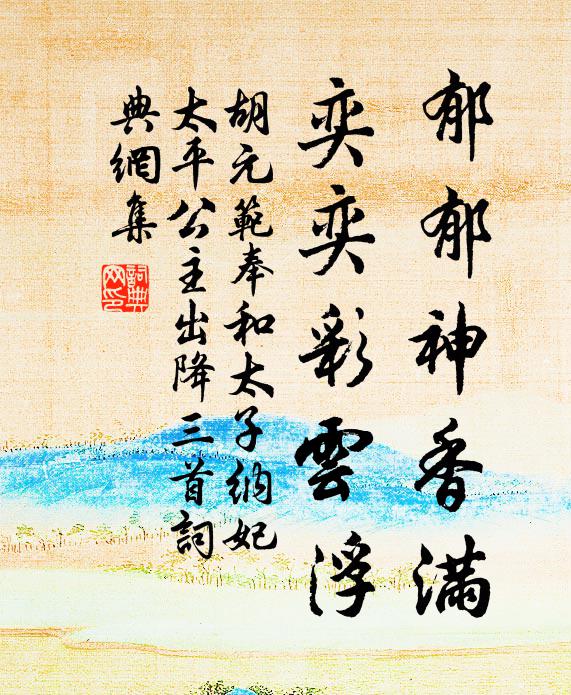 郁郁神香滿
奕奕彩雲浮
胡元範奉和太子納妃
太平公主出降三首詞
典網集
詞典网印